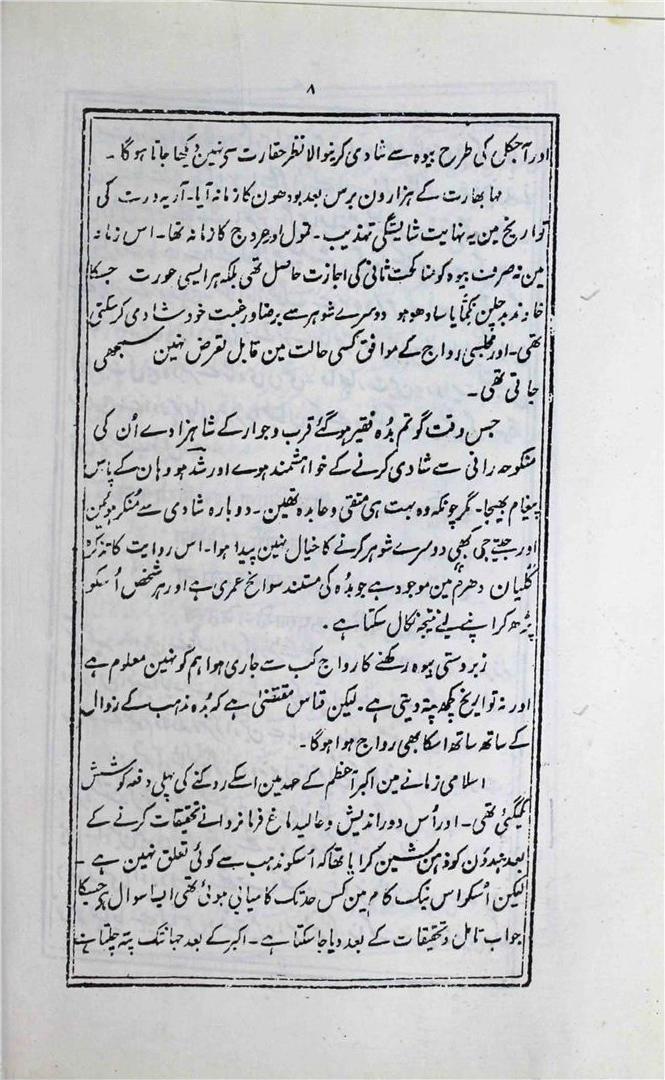 ۸
اور آجکل کی طرح بیوہ سے شادی کرنیوالا نظر حقارت سے نہین دیکھا جاتا ہوگا ۔
مہا بھارت کے ہزارون برس بعد بودھون کا زمانہ آیا ۔ آریہ ورت کی
تواریخ مین یہ نہایت شایستگی تہذیب ۔ تمول اور عروج کا زمانہ تھا ۔ اس زمانہ
مین نہ صرف بیوہ کو مناکحت ثانی کی اجازت حاصل تھی بلکہ ہر ایسی عورت جسکا
خاوند بدچلن نکمّا یا سادھو ہو دوسرے شوہر سے برضا و رغبت خود شادی کرسکتی
تھی ۔ اور مجلسی رواج کے موافق کسی حالت مین قابل تعرض نہین سمجھی
جاتی تھی ۔
جس وقت گوتم بُدہ فقیر ہوگئے قرب و جوار کے شاہزادے اُن کی
منکوحہ رانی سے شادی کرنے کے خواہشمند ہوے اور شدہودہان کے پاس
پیغام بھیجا ۔ مگر چونکہ وہ بہت ہی متقی و عابدہ تھین ۔ دوبارہ شادی سے مُنکر ہوئین
اور جیتے جی کبھی دوسرے شوہر کرنے کا خیال نہین پیدا ہوا ۔ اس روایت کا تذکرہ
کلیان دھرم مین موجود ہے جو بُدہ کی مستند سوانح عمری ہے اور ہر شخص اُسکو
پڑھ کر اپنے لیے نتیجہ نکال سکتا ہے ۔
زبردستی بیوہ رکھنے کا رواج کب سے جاری ہوا ہم کو نہین معلوم ہے
اور نہ تواریخ کچھ پتہ دیتی ہے ۔ لیکن قیاس مقتضیٰ ہے کہ بُدہ مذہب کے زوال
کے ساتھ ساتھ اسکا بھی رواج ہوا ہوگا ۔
اسلامی زمانے مین اکبر اعظم کے عہد مین اسکے روکنے کی پہلی دفعہ کوشش
کیگئی تھی ۔ اور اُس دور اندیش و عالیدماغ فرمانروا نے تحقیقات کرنے کے
بعد ہندؤن کو ذہن نشین کرایا تھا کہ اُسکو مذہب سے کوئی تعلق نہین ہے ۔
لیکن اُسکو اس نیک کام مین کس حد تک کامیابی ہوئی تھی ایسا سوال ہے جسکا
جواب تامل و تحقیقات کے بعد دیا جاسکتا ہے ۔ اکبر کے بعد جہانتک پتہ چلتا ہے